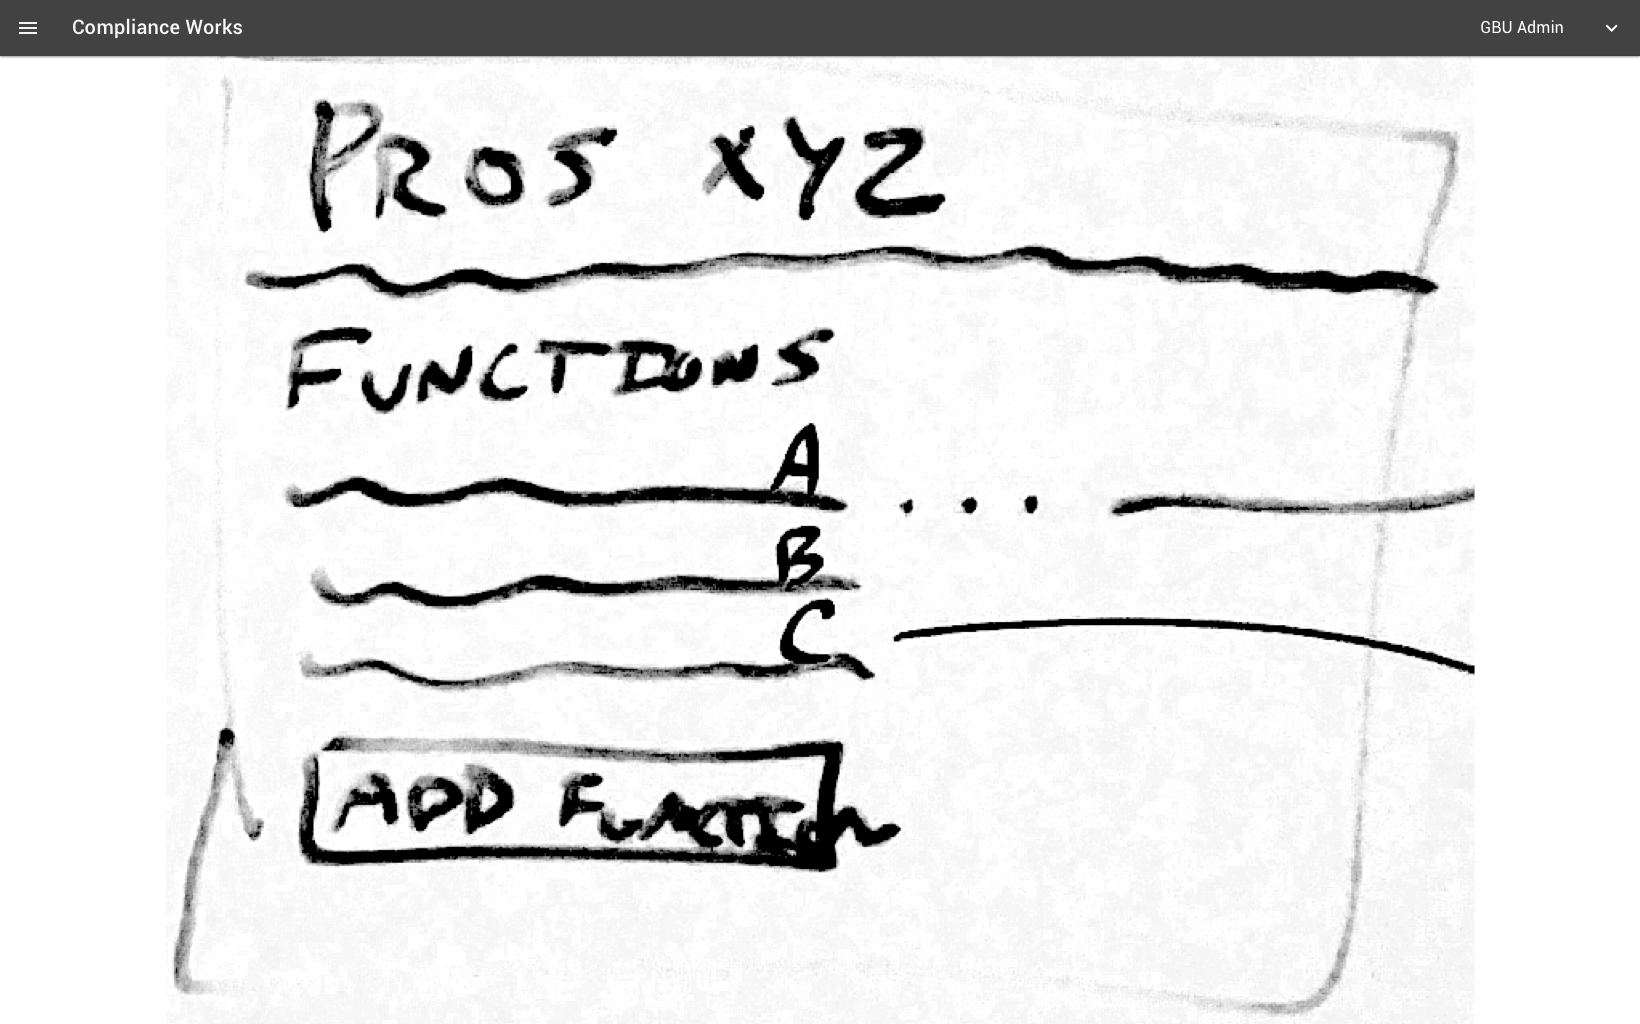 Compliance Works
GBU Admin
PROS XYZ
FUNCTIONS
A
B
C
ADD FUNCTION